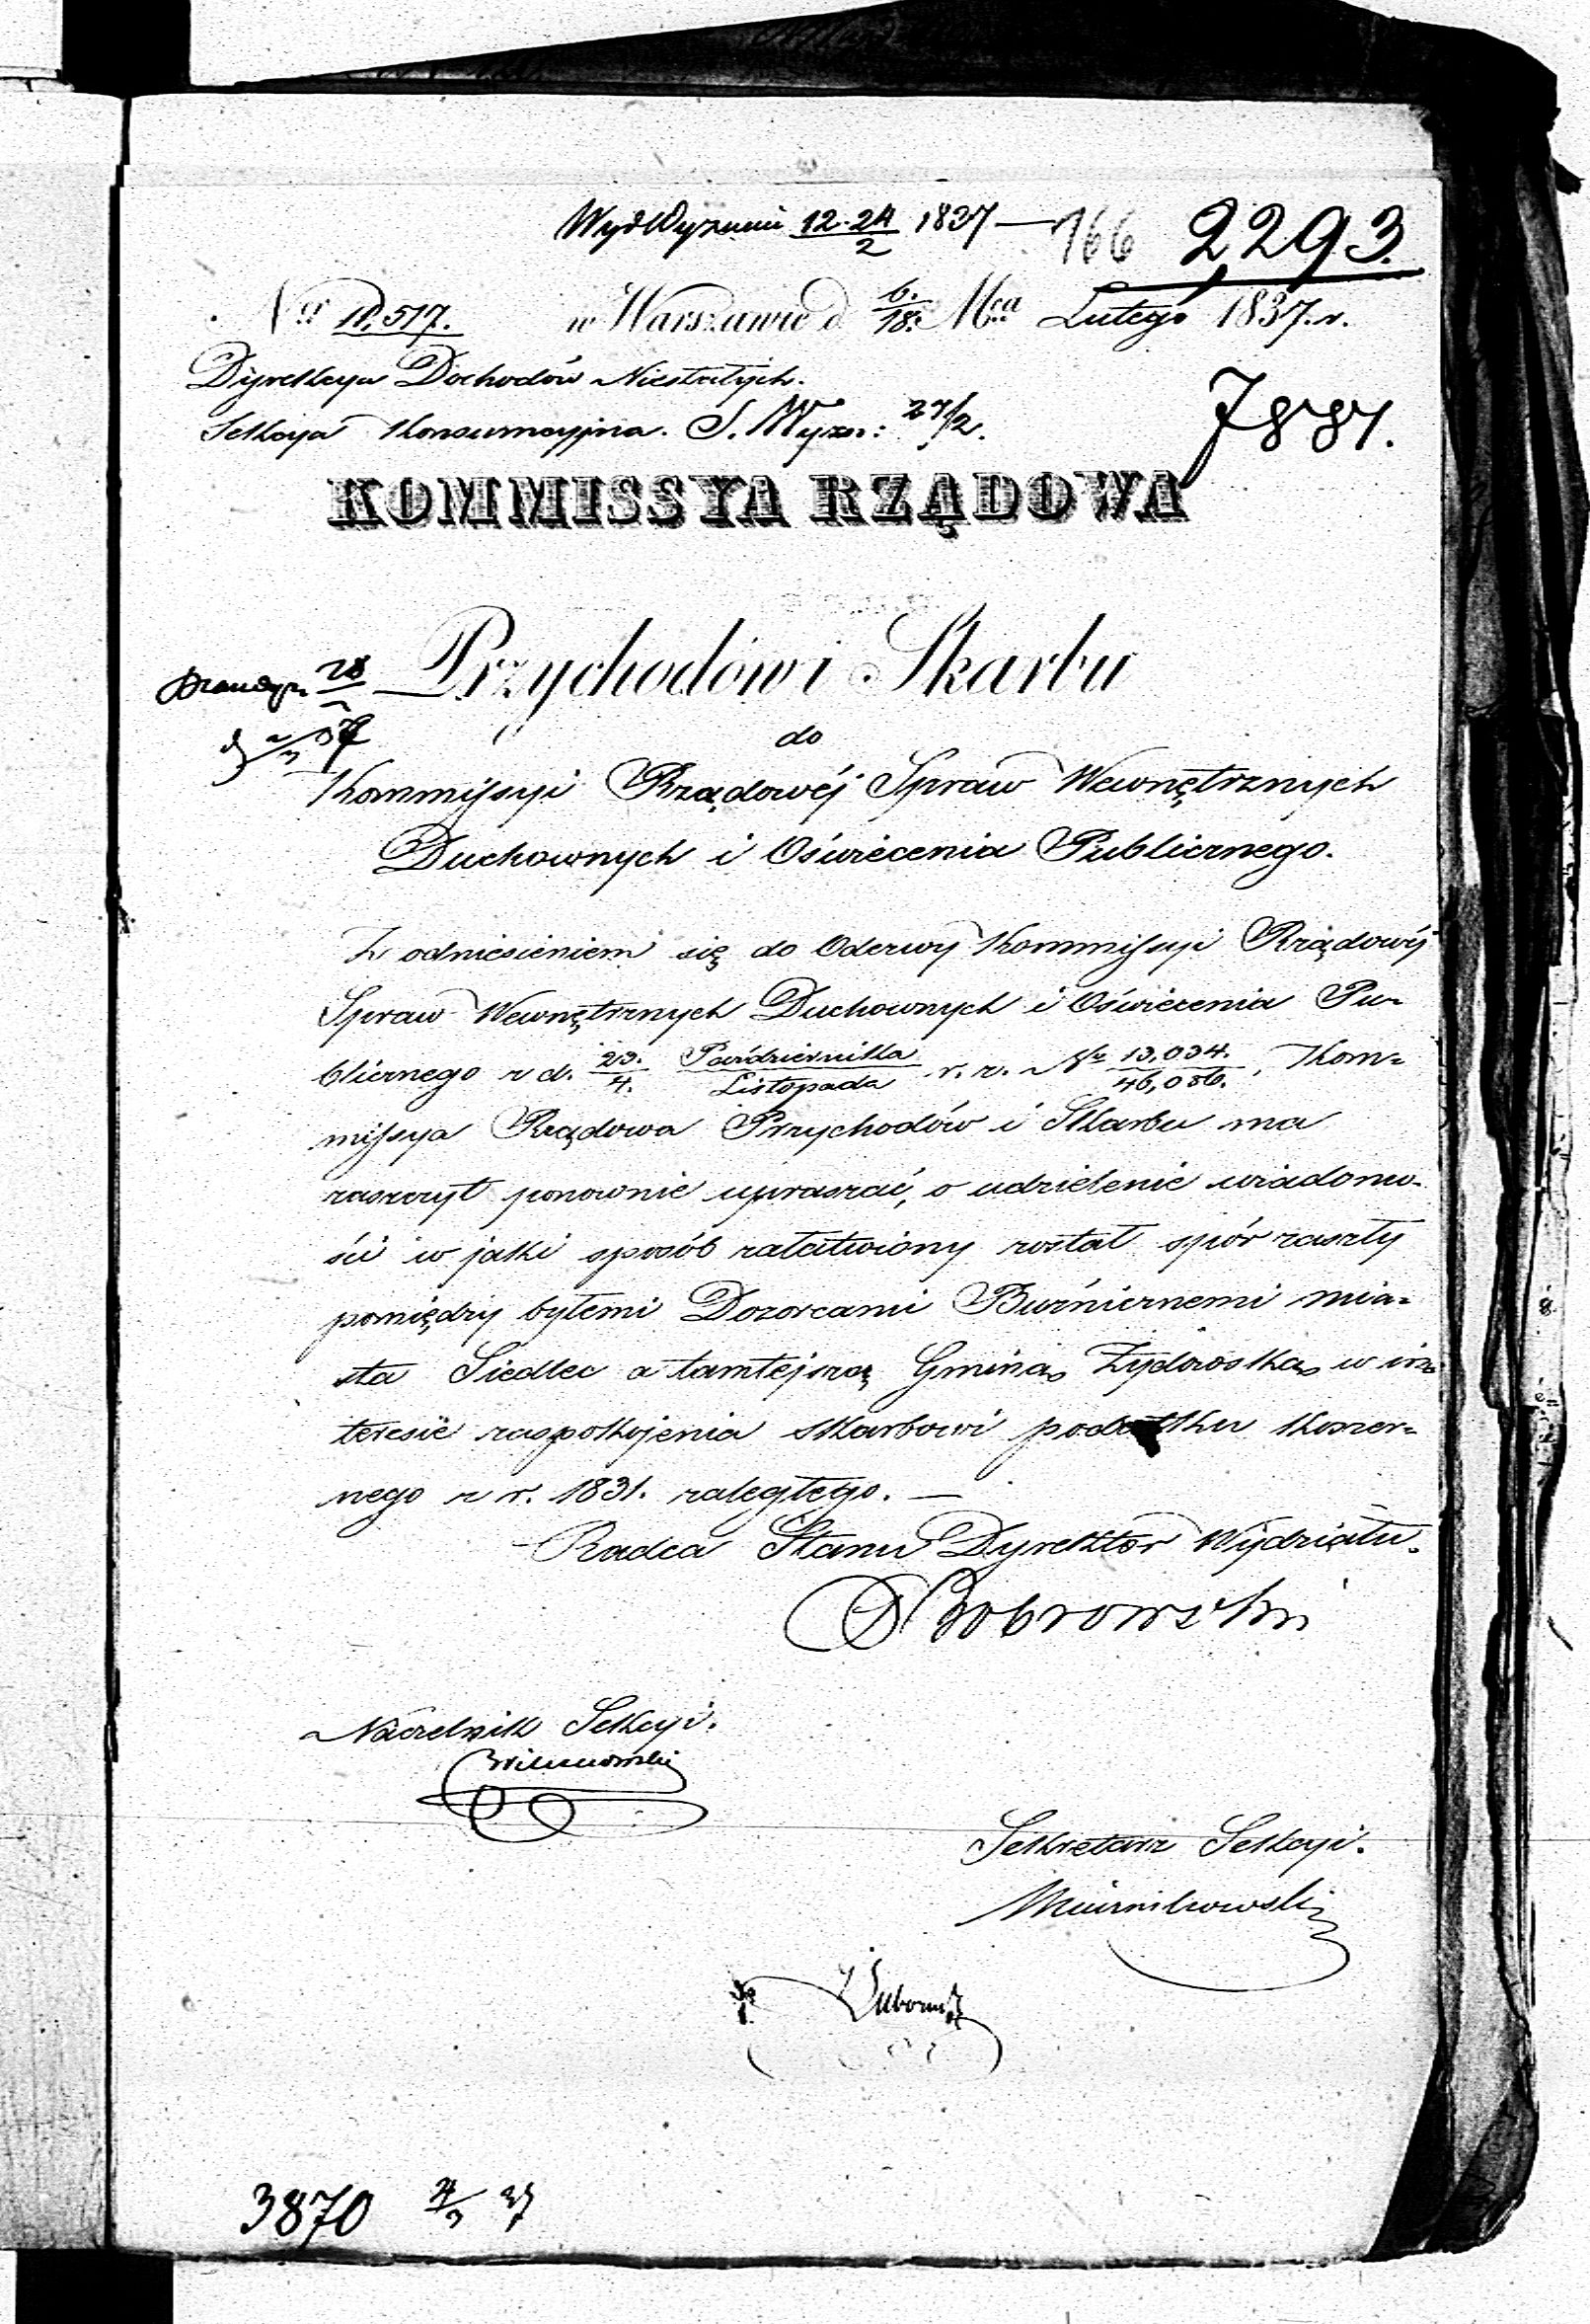 Wyd Wyznań 12.24/2 1837 — 166 2293.
Nr 10,517. w Warszawie d 6./18. Mca Lutego 1837. r.
Dyrekcya Dochodów Niestałych.
Sekcya Konsumcyjna. S. Wyzn: 27/2. 7887.
KOMMISSYA RZĄDOWA
Przychodów i Skarbu
28
do
Kommissyi Rządowéj Spraw Wewnętrznych
Duchownych i Oświecenia Publicznego.
Z odniesieniem się do Odezwy Kommissyi Rządowéj
Spraw Wewnętrznych Duchownych i Oświecenia Pu-
blicznego z d. 23./4. Października/Listopada r. z. Nr 13,034./46,086., Kom-
missya Rządowa Przychodów i Skarbu ma
zaszczyt ponownie upraszać, o udzielenie wiadomo-
ści w jaki sposób załatwiony został spór zaszły
pomiędzy byłemi Dozorcami Bużnicznemi mia-
sta Siedlec a tamtejszą Gminą Żydowską w in-
teresie zaspokojenia Skarbowi podatku koszer-
nego z r. 1831. zaległego. —
Radca Stanu Dyrektor Wydziału.
Bobrowski
Naczelnik Sekcyi.
Sekretarz Sekcyi.
3870 4/3 37